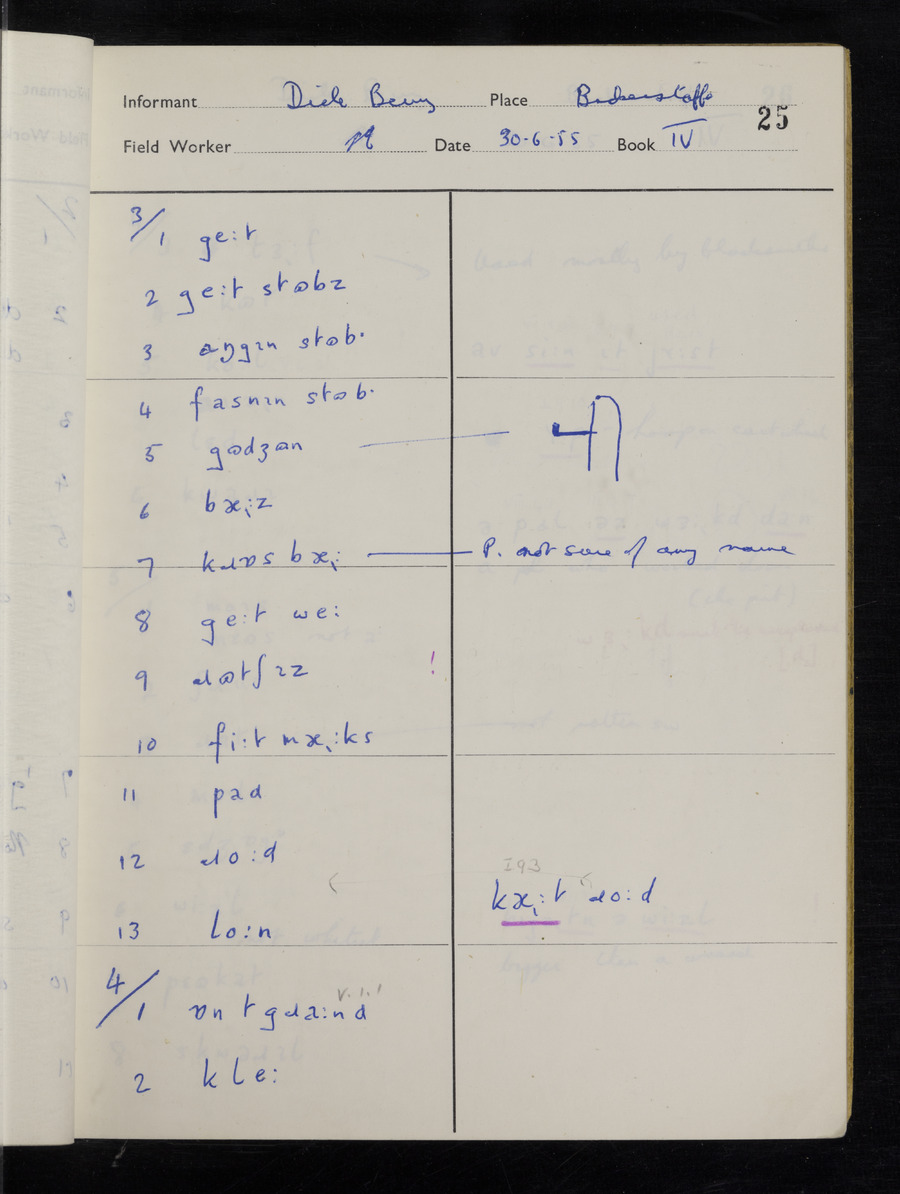 Informant Dick Berry Place Bickerstaffe
25
Field Worker Date 30-6-55 Book IV
3/1 ge:t
2 ge:t stɷbz
3 aŋgɪn stɷb·
4 fasnɪn stɷb·
5 gɷdʒən
6 bæ̞:z
7 kɹɒs bæ̞: P. not sure of any name
8 ge:t we:
9 ɹɷtʃɪz !
10 fi:t mæ̞:ks
11 pad
12 ɹo:d
I93
kæ̞:t ɹo:d
13 lo:n
V.1.1
4/1 ɒn t gɹa:nd
2 kle: